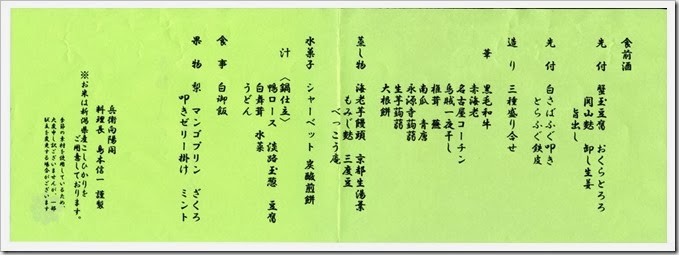 食前酒
先付 蟹玉豆腐 おくらとろろ
関山麩 卸し生姜
旨出し
先付 白さばふぐ叩き
とらふぐ鉄皮
造り 三種盛り合せ
華 黒毛和牛
赤海老
名古屋コーチン
烏賊一夜干し
椎茸 蕪
南瓜 青唐
永源寺蒟蒻
生芋蒟蒻
大根餅
蒸し物 海老芋饅頭 京都生湯葉
もみじ麩 三度豆
べっこう庵
水菓子 シャーベット 炭酸煎餅
汁 〈鍋仕立〉
鴨ロース 淡路玉葱 豆腐
白舞茸 水菜
うどん
食事 白御飯
果物 梨 マンゴプリン ざくろ
叩きゼリー掛け ミント
兵衛向陽閣
料理長 島本信一 謹製
※お米は新潟県産こしひかりを
ご用意しております。
季節の素材を使用しているため、
大変申し訳ございませんが、一部
献立を変更する場合がございます